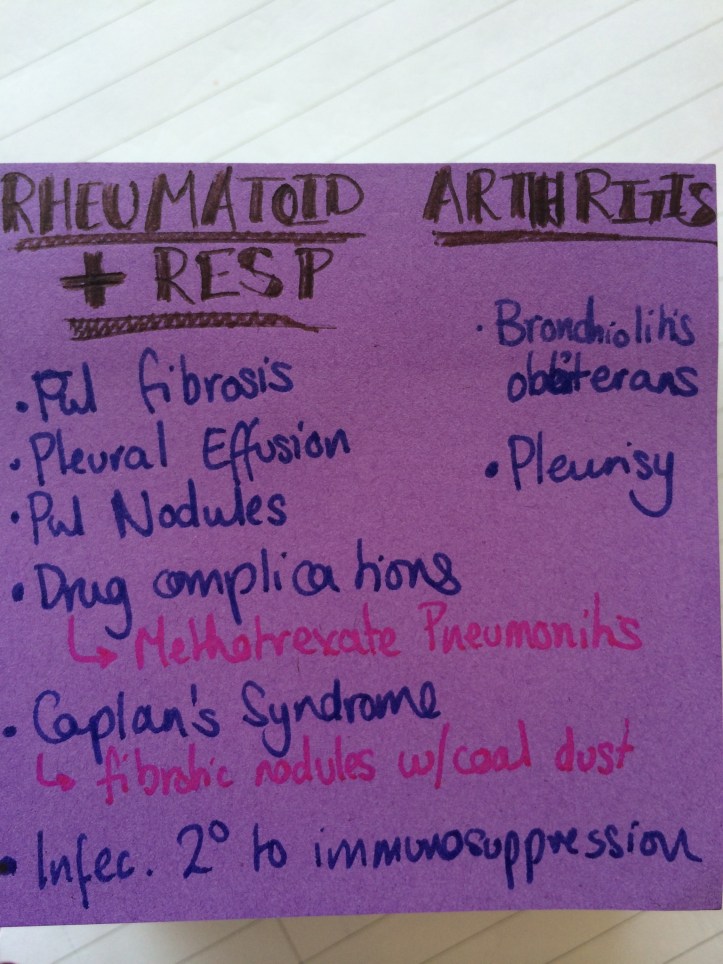 RHEUMATOID ARTHRITIS
+ RESP
• Pul fibrosis
• Pleural Effusion
• Pul Nodules
• Drug complications
↳ Methotrexate Pneumonitis
• Caplan's Syndrome
↳ fibrotic nodules w/coal dust
• Infec. 2° to immunosuppression
• Bronchiolitis
obliterans
• Pleurisy